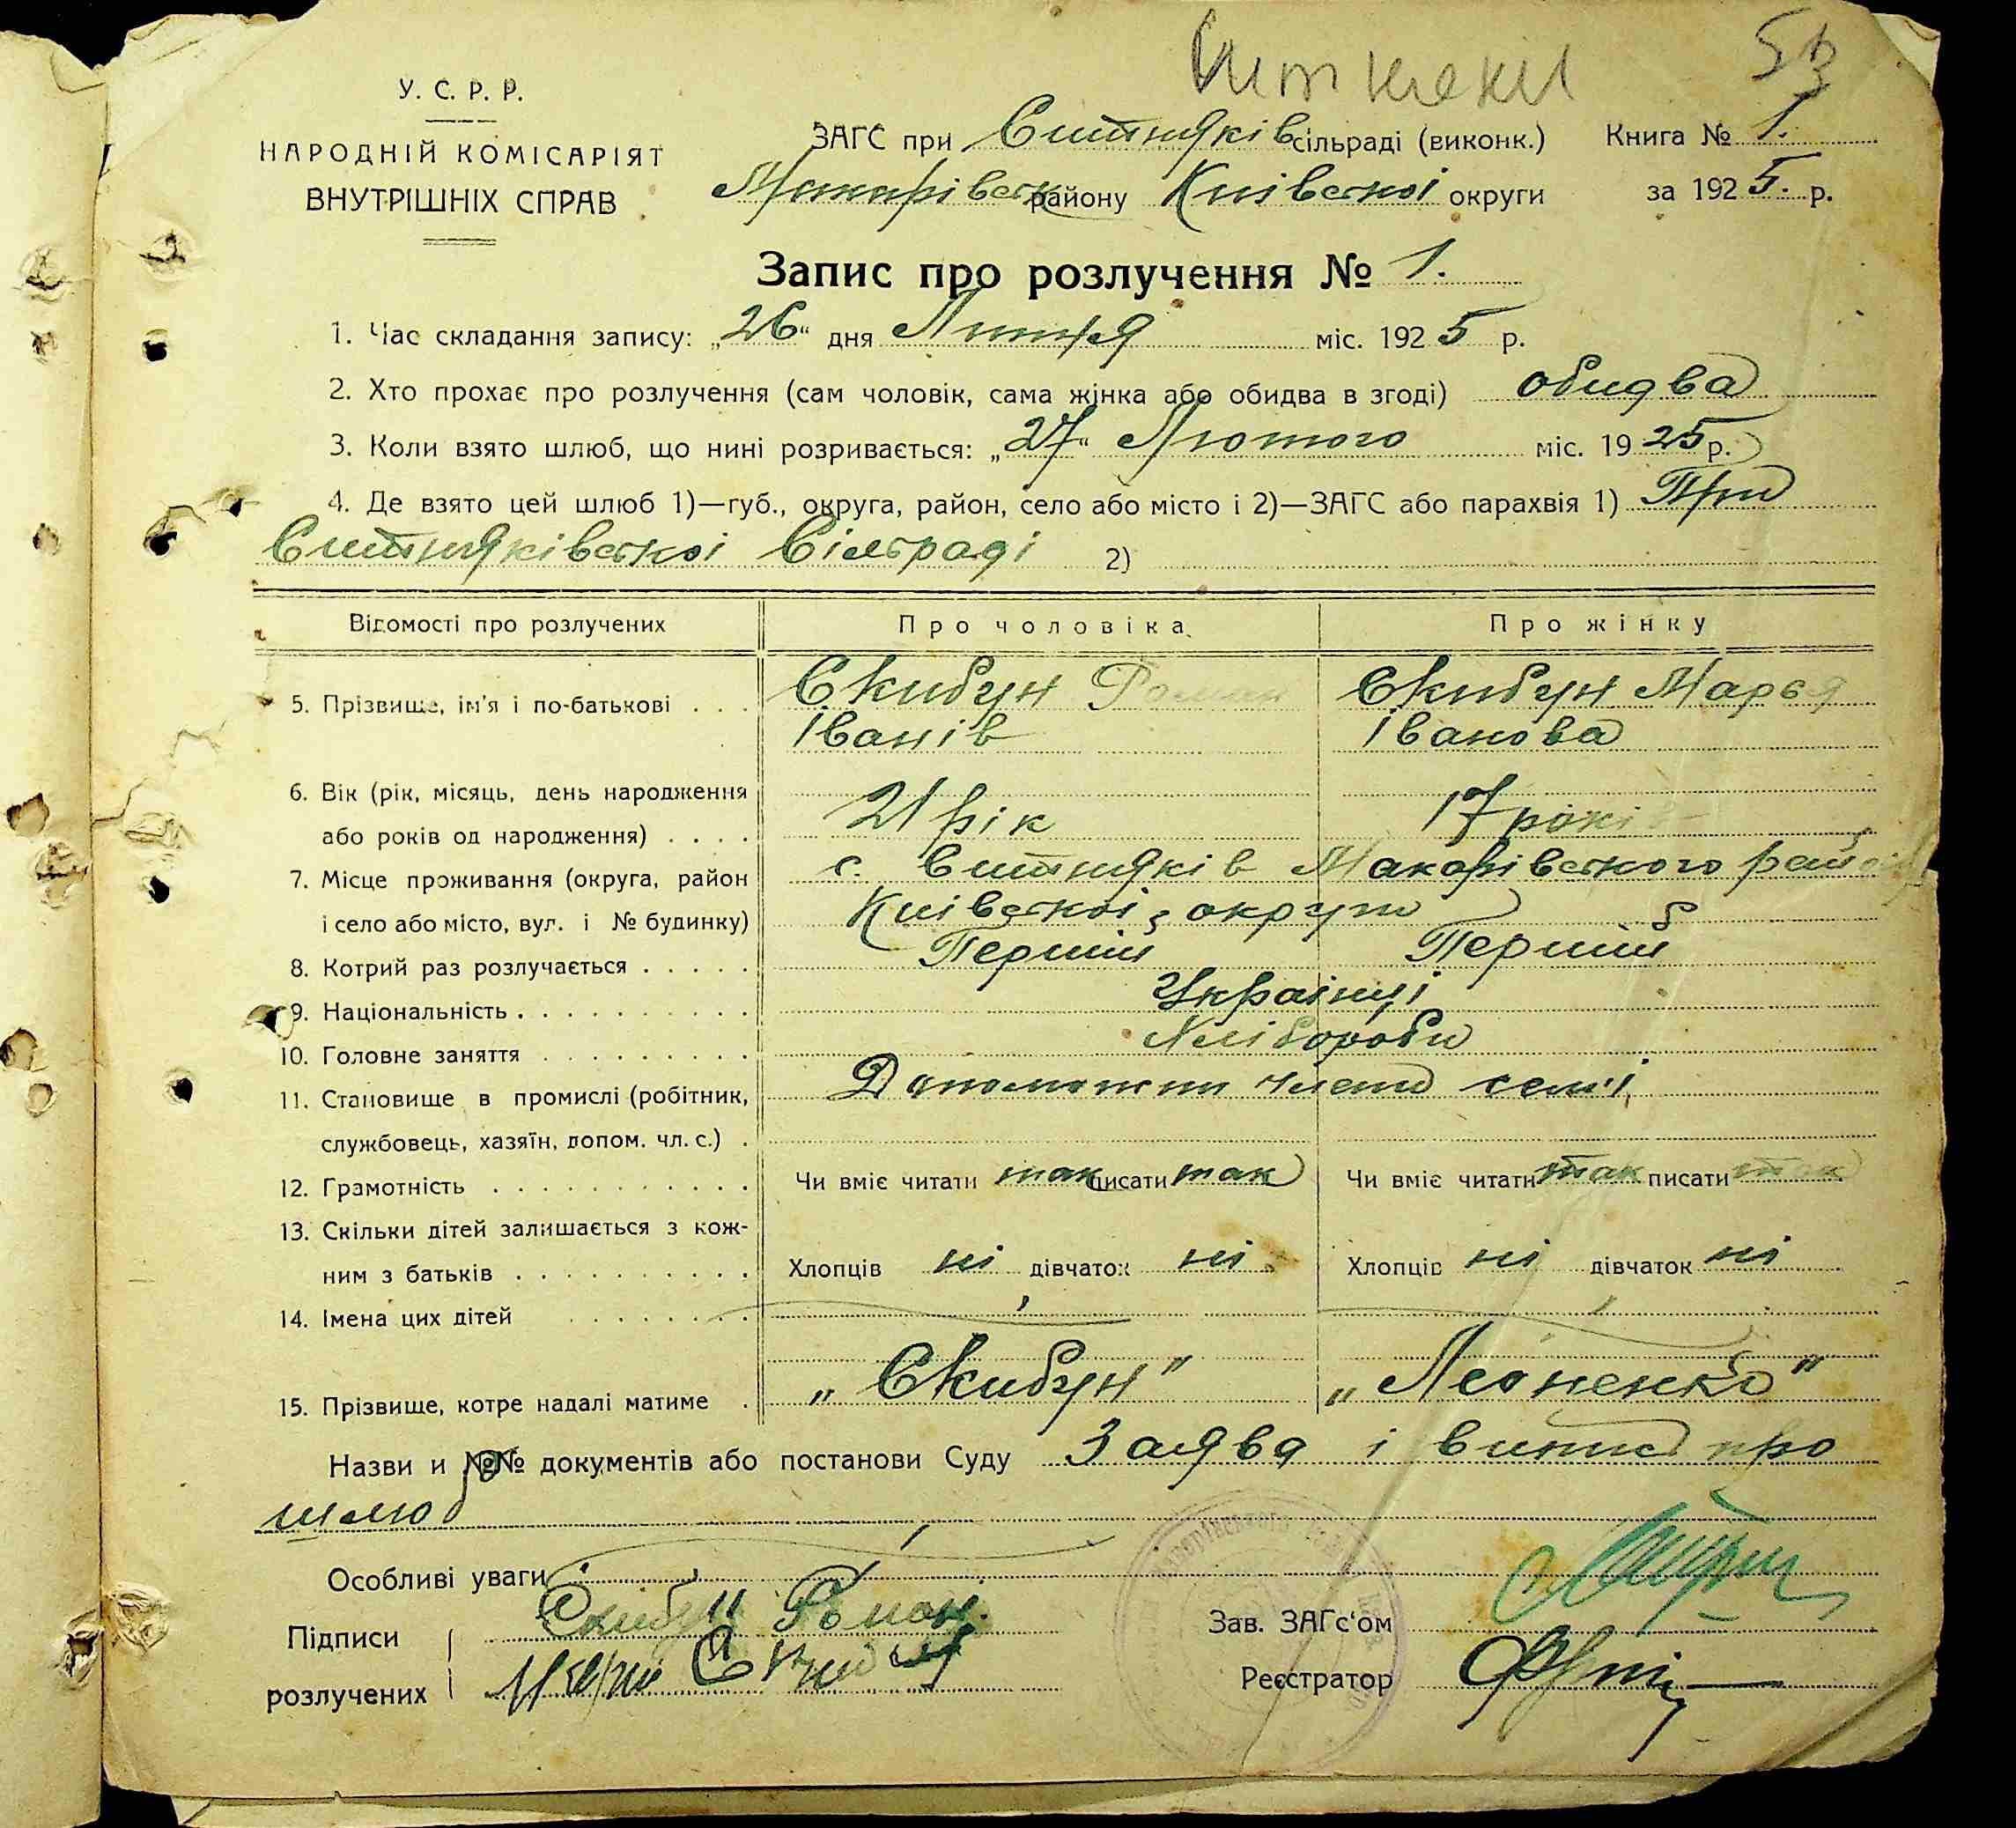 Ситняки
53
У. С. Р. Р.
НАРОДНІЙ КОМІСАРІЯТ
ВНУТРІШНІХ СПРАВ
ЗАГС при Ситняків сільраді (виконк.) Книга № 1.
Макарівськ району Київської округи за 1925. р.
Запис про розлучення № 1.
1. Час складання запису: „26“ дня міс. 1925 р.
2. Хто прохає про розлучення (сам чоловік, сама жінка або обидва в згоді) обидва
3. Коли взято шлюб, що нині розривається: „27“ Лютого міс. 1925 р.
4. Де взято цей шлюб 1)—губ., округа, район, село або місто і 2)—ЗАГС або парахвія 1) При
Ситняківської Сільраді 2)
Відомості про розлучених Про чоловіка Про жінку
5. Прізвище, ім'я і по-батькові . . . Скибун Роман Скибун Марья
Іванів Іванова
6. Вік (рік, місяць, день народження
або років од народження) . . . . 21 рік 17 років
7. Місце проживання (округа, район с. Ситняків Макарівського району
і село або місто, вул. і № будинку) Київської округи
8. Котрий раз розлучається . . . . . Перший Перший
9. Національність . . . . . . . . . . Українці
10. Головне заняття . . . . . . . . . Хлібороби
11. Становище в промислі (робітник, члени сем'і
службовець, хазяїн, допом. чл. с.) .
12. Грамотність . . . . . . . . . . . Чи вміє читати так писати так Чи вміє читати так писати так
13. Скільки дітей залишається з кож-
ним з батьків . . . . . . . . . . Хлопців ні дівчаток ні Хлопців ні дівчаток ні
14. Імена цих дітей . . . . . . . .
15. Прізвище, котре надалі матиме . „Скибун" „Леоненко"
Назви и №№ документів або постанови Суду Заява і випис про
шлюб
Особливі уваги
Підписи Скибун Роман
розлучених
Зав. ЗАГс'ом
Реєстратор